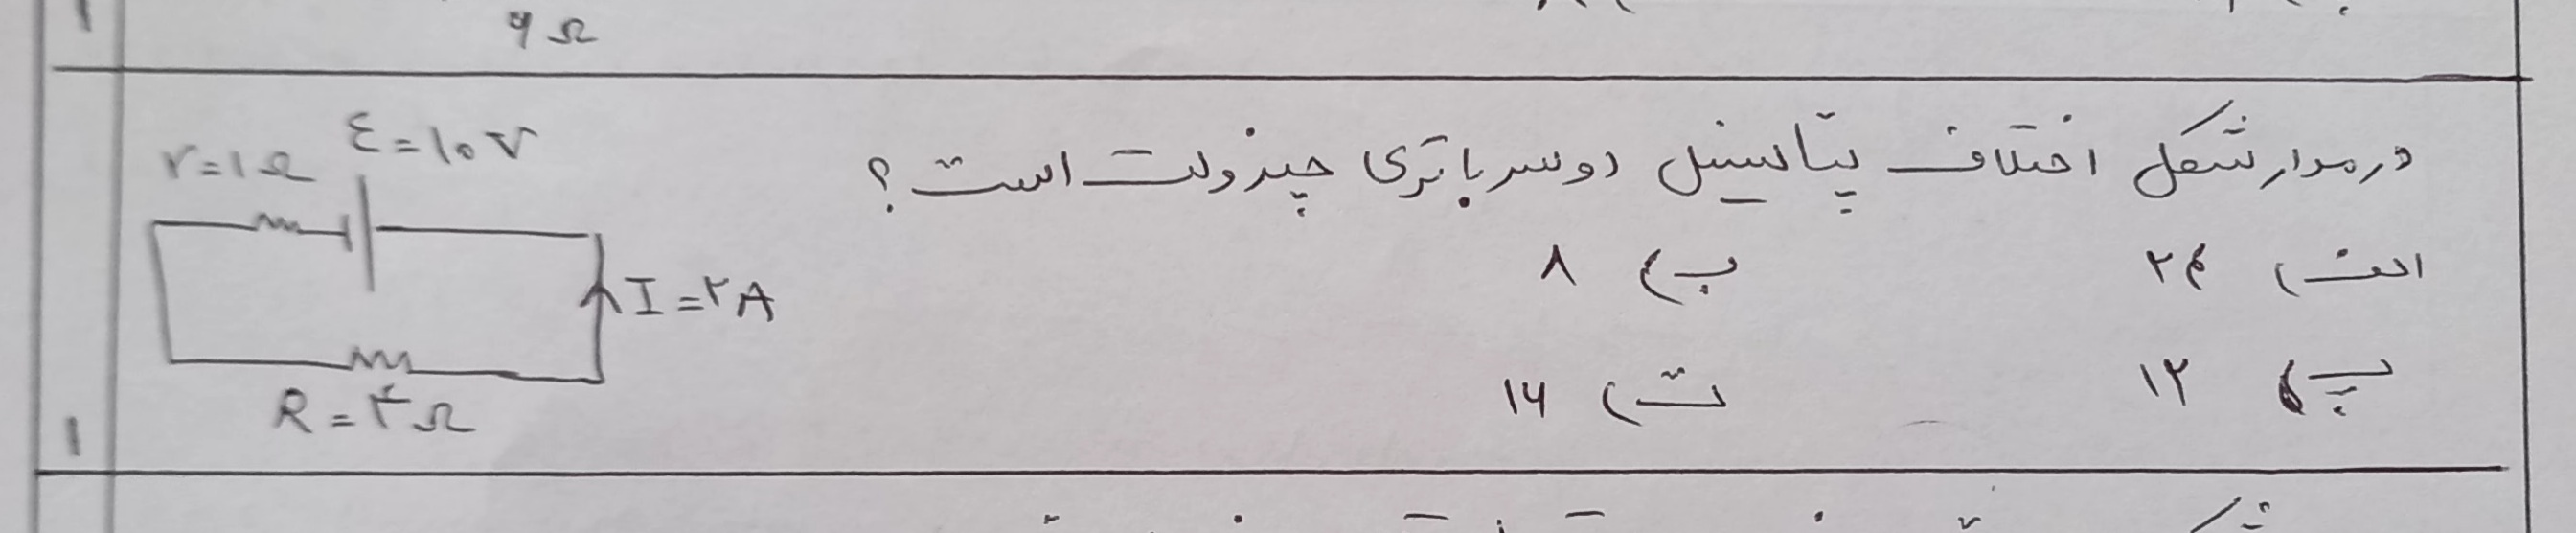 ۶ Ω
در مدار شکل اختلاف پتانسیل دو سر باتری چند ولت است؟
الف) ۲۴
ب) ۸
پ) ۱۲
ت) ۱۶
ε = ۱۰ V
r = ۱ Ω
I = ۲ A
R = ۴ Ω
۱